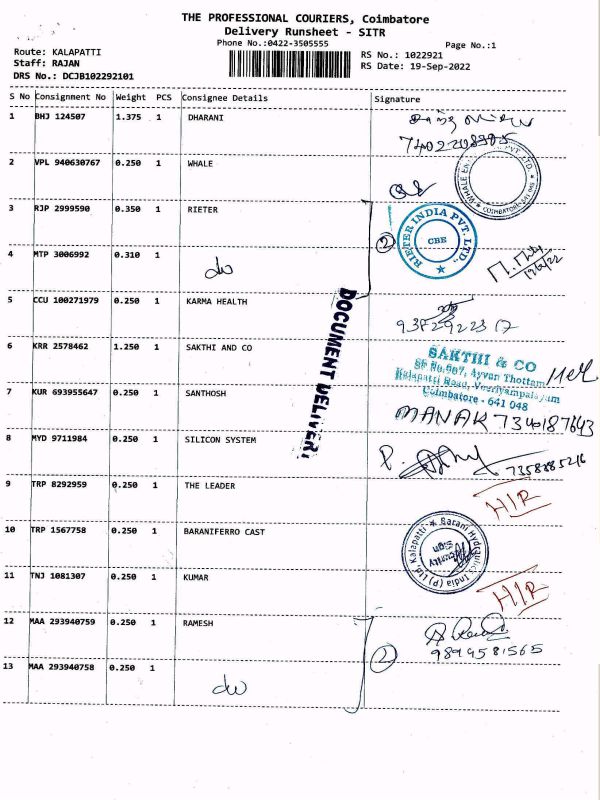 THE PROFESSIONAL COURIERS, Coimbatore
Delivery Runsheet - SITR
Phone No.:0422-3505555
Page No.:1
Route: KALAPATTI
RS No.: 1022921
Staff: RAJAN
RS Date: 19-Sep-2022
DRS No.: DCJB102292101
S No Consignment No Weight PCS Consignee Details Signature
1 BHJ 124507 1.375 1 DHARANI
2 VPL 940630767 0.250 1 WHALE
3 RJP 2999590 0.350 1 RIETER
RIETER INDIA PVT. LTD.
CBE
2
4 MTP 3006992 0.310 1 do
5 CCU 100271979 0.250 1 KARMA HEALTH
DOCUMENT DELIVERY
6 KRR 2578462 1.250 1 SAKTHI AND CO
SAKTHI & CO
Ayyan Thottam
Kalapatti Road, Veeriyampalayam
Coimbatore - 641 048
7 KUR 693955647 0.250 1 SANTHOSH
MANAK 7340187643
8 MYD 9711984 0.250 1 SILICON SYSTEM
7358885216
9 TRP 8292959 0.250 1 THE LEADER
HIR
10 TRP 1567758 0.250 1 BARANIFERRO CAST
Barani Hydraulics India (P) Ltd. Kalapatti
Security
Sign
11 TNJ 1081307 0.250 1 KUMAR
HIR
12 MAA 293940759 0.250 1 RAMESH
9894581565
2
13 MAA 293940758 0.250 1 do